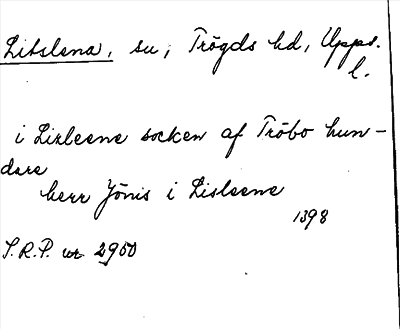 Litslena, su, Trögds hd, Upps.
l.
i Lizleene socken af Tröbo hun-
dare
herr Jönis i Lisleene
1398
S.R.P. nr 2960